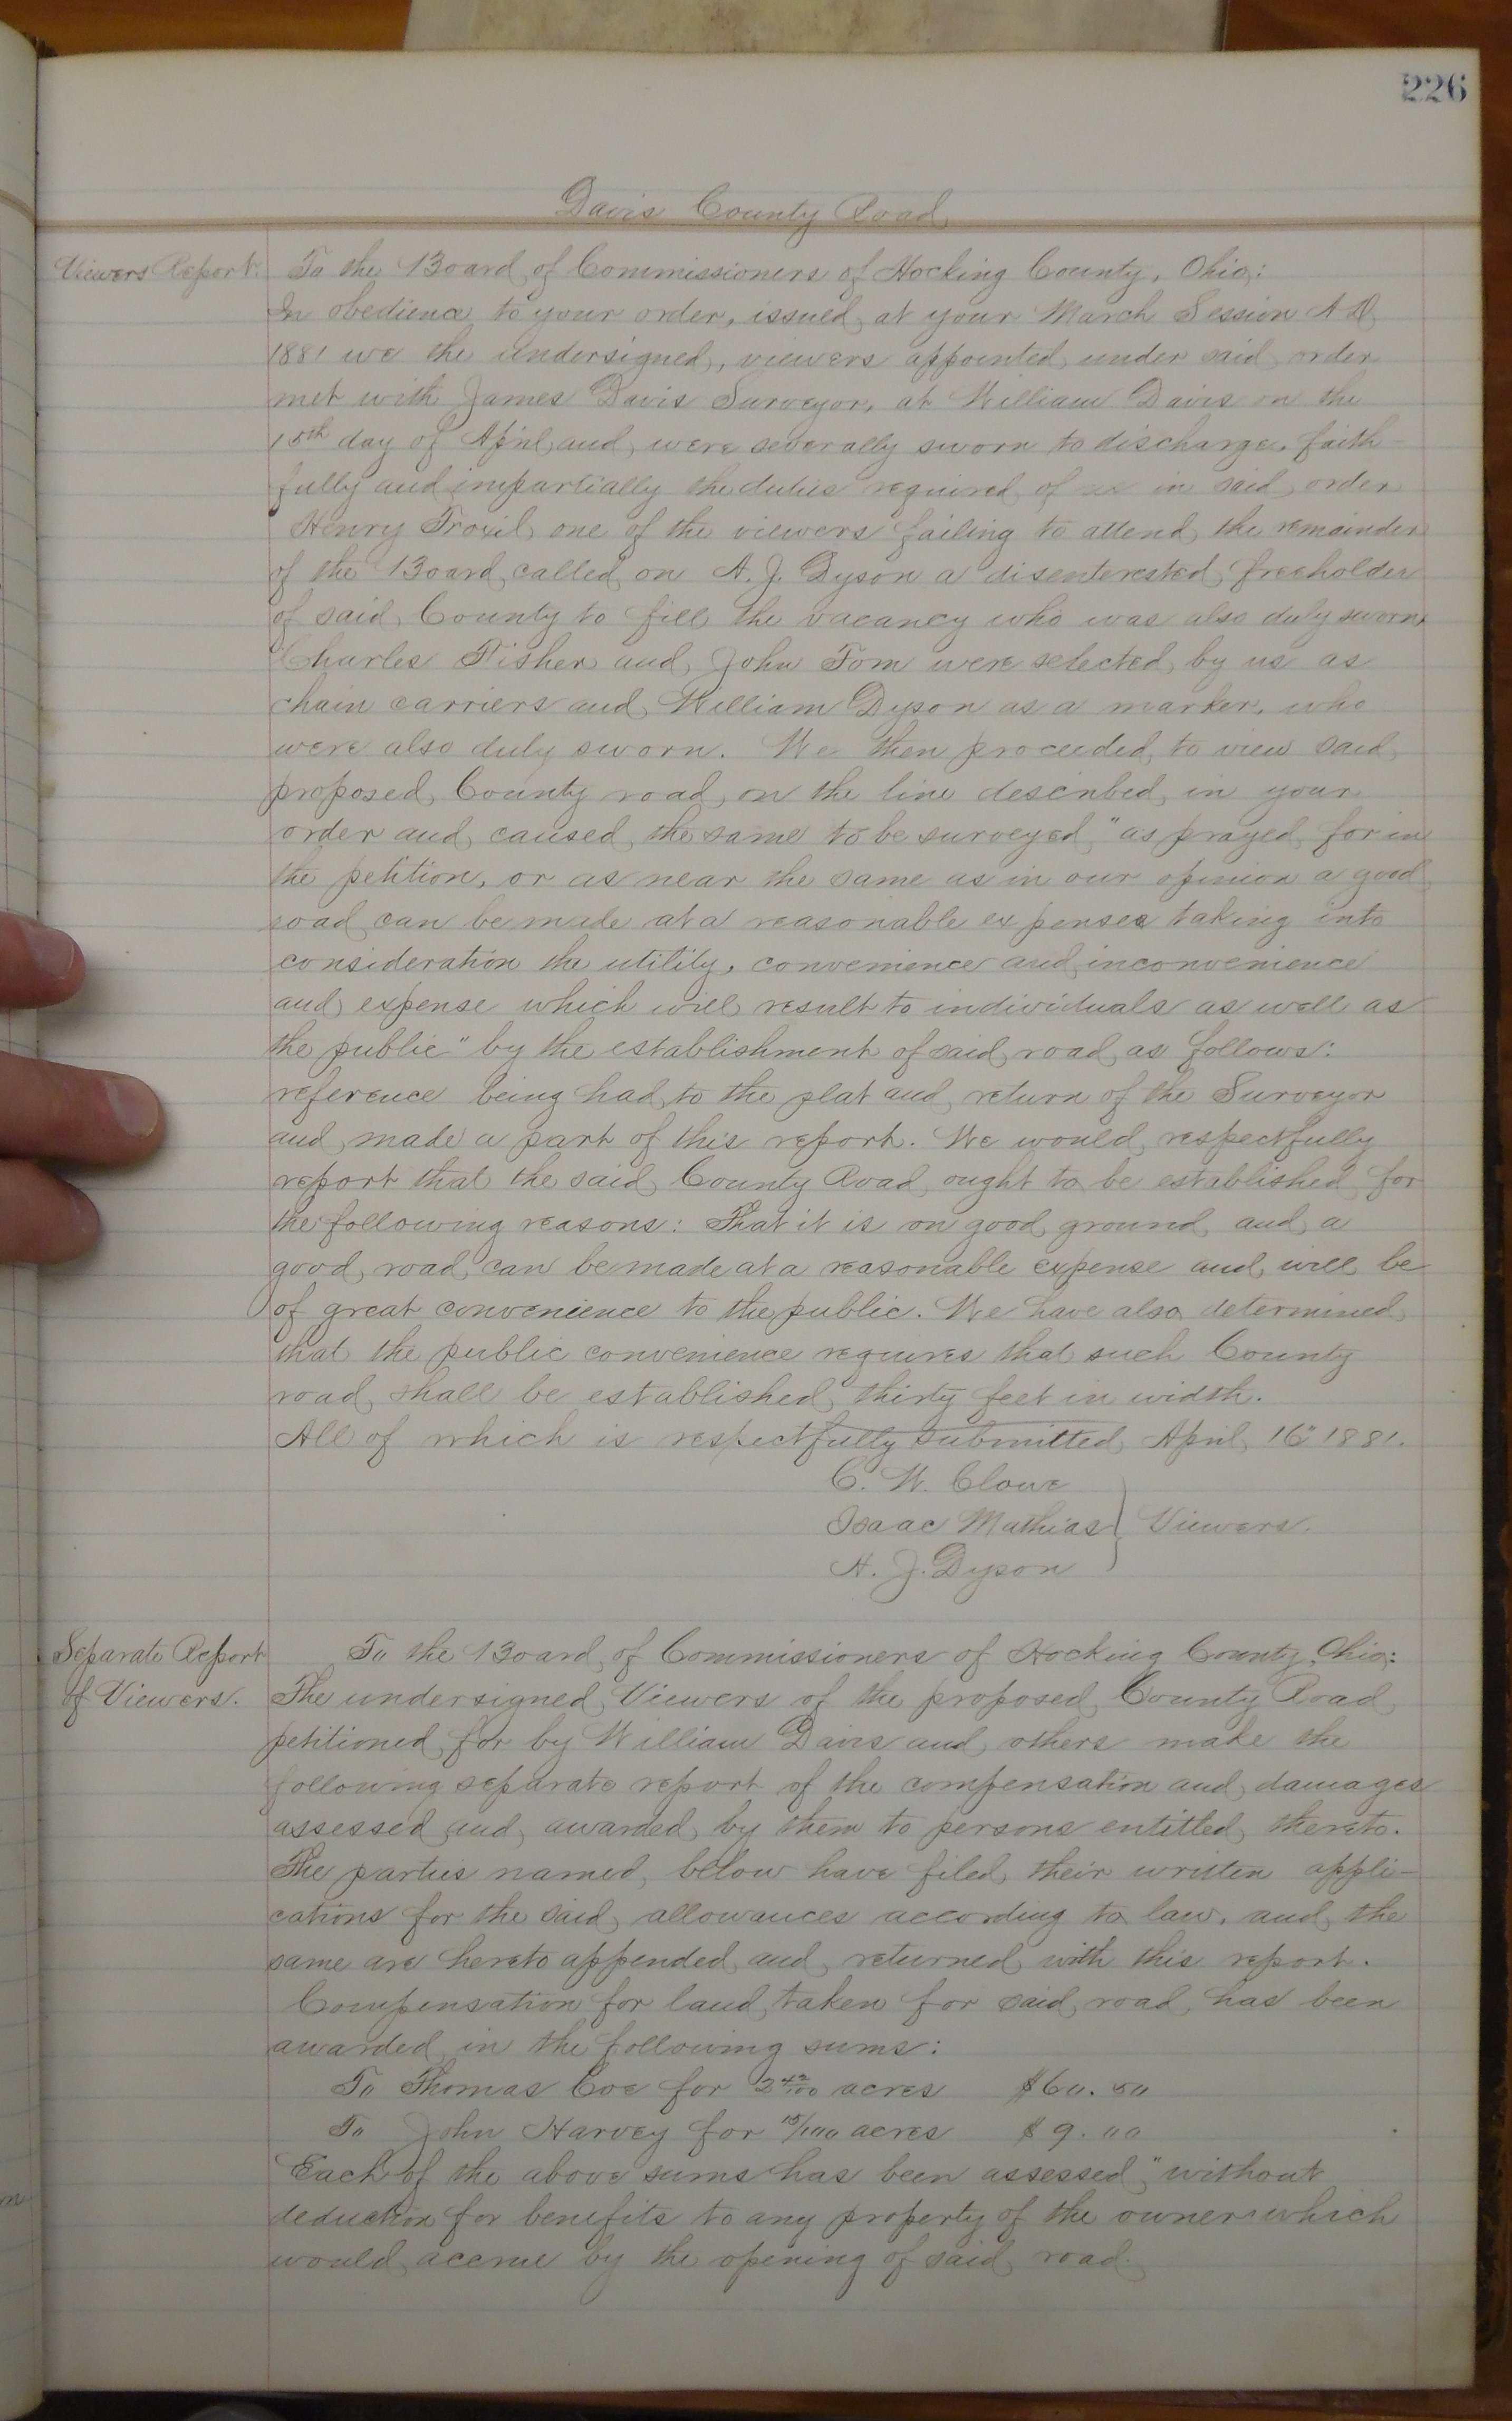 226
Davis County Road
Viewers Report.
To the Board of Commissioners of Hocking County, Ohio:
In obedience to your order, issued at your March Session A D
1881 we the undersigned, viewers appointed under said order
met with James Davis Surveyor, at William Davis on the
15th day of April and were severally sworn to discharge, faith-
fully and impartially the duties required of us in said order
Henry Troxil one of the viewers failing to attend the remainder
of the Board called on A. J. Dyson a disenterested freeholder
of said County to fill the vacancy who was also duly sworn,
Charles Fisher and John Tom were selected by us as
chain carriers and William Dyson as a marker, who
were also duly sworn. We then proceeded to view said
proposed County road on the line described in your
order and caused the same to be surveyed "as prayed for in
the petition, or as near the same as in our opinion a good
road can be made at a reasonable expense taking into
consideration the utility, convenience and inconvenience
and expense which will result to individuals as well as
the public" by the establishment of said road as follows:
reference being had to the plat and return of the Surveyor
and made a part of this report. We would respectfully
report that the said County Road ought to be established for
the following reasons: That it is on good ground and a
good road can be made at a reasonable expense and will be
of great convenience to the public. We have also determined
that the public convenience requires that such County
road shall be established thirty feet in width.
All of which is respectfully submitted April 16" 1881.
C. W. Clowe
Isaac Mathias } Viewers.
A. J. Dyson
Separate Report
of Viewers.
To the Board of Commissioners of Hocking County, Ohio:
The undersigned Viewers of the proposed County Road
petitioned for by William Davis and others make the
following separate report of the compensation and damages
assessed and awarded by them to persons entitled thereto.
The parties named below have filed their written appli-
cations for the said allowances according to law, and the
same are hereto appended and returned with this report.
Compensation for land taken for said road has been
awarded in the following sums:
To Thomas Coe for 2 42/100 acres $60.50
To John Harvey for 15/100 acres $9.00
Each of the above sums has been assessed "without
deduction for benefits to any property of the owner which
would accrue by the opening of said road.